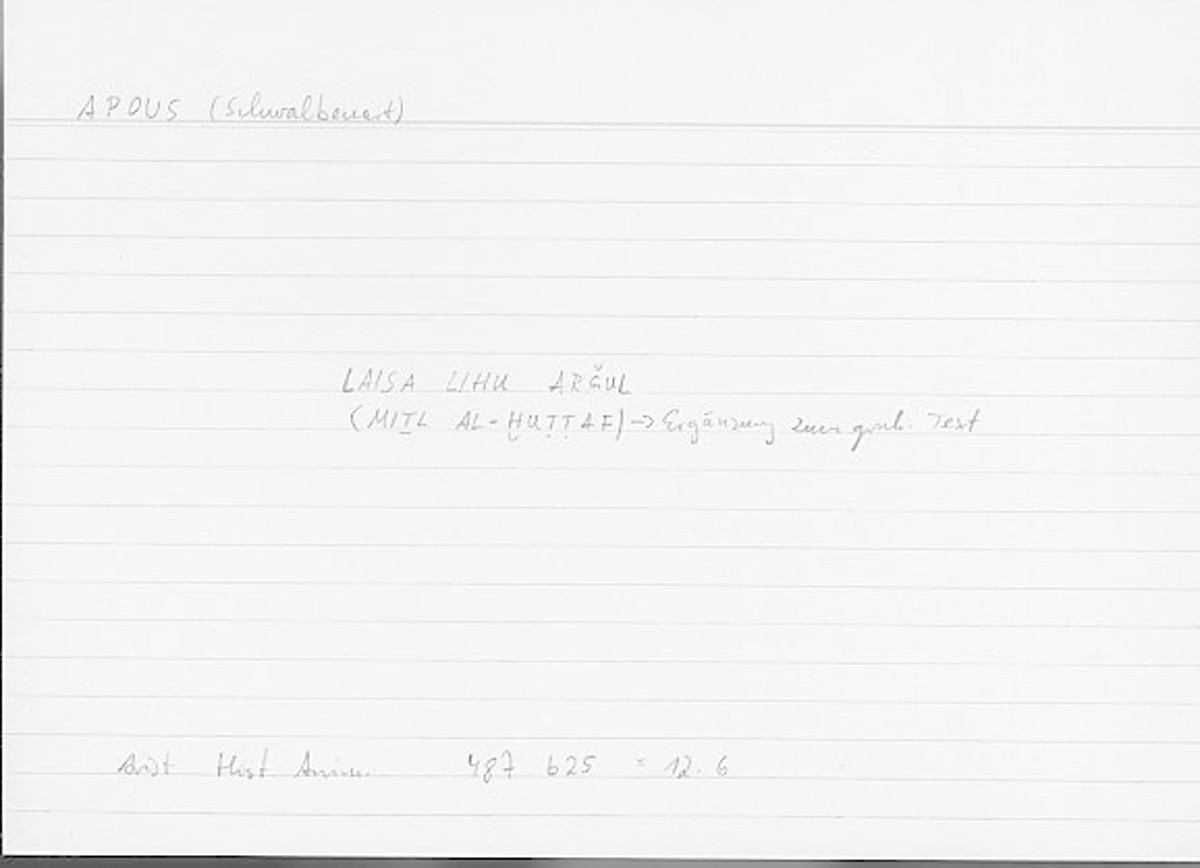 APOUS (Schwalbenart)
LAISA LIHU ARǦUL
(MIṮL AL-ḪUṬṬAF) → Ergänzung zum griech. Text
Arist Hist Anim. 487 b25 = 12.6